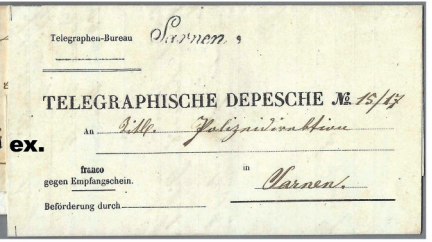 Telegraphen-Bureau Sarnen.
TELEGRAPHISCHE DEPESCHE № 15/17
An Titl. Polizeidirektion
ex.
franco
gegen Empfangschein. in Sarnen.
Beförderung durch